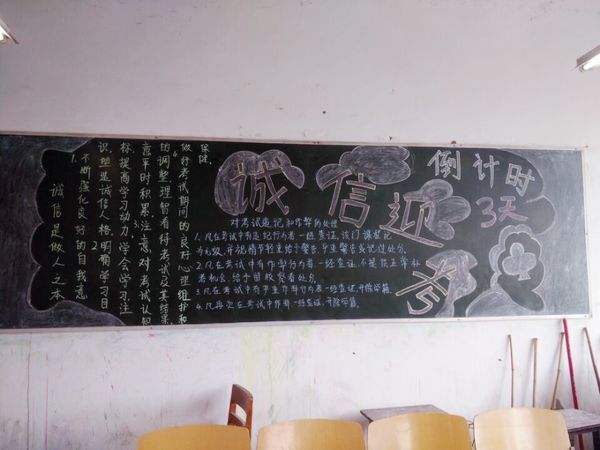 诚信迎考
倒计时
3天
对考试违纪和作弊的处理
1.凡在考试中有违纪行为者一经查证,该门课程记
为0分,并视情节轻重给予警告、严重警告或记过处分。
2.凡在考试中有作弊行为者一经查证,不
机会,给予留校察看处分
3.凡在考试中有严重作弊行为者一经查证,开除学籍。
4.凡再次在考试中作弊,一经查证,开除学籍。
诚信是做人之本
1.不断强化良好的自我意
识,塑造诚信人格,2明确学习目
标,提高学习动力,学会学习,注
意平时积累,3.注意对考试认知
的调整,理智看待考试及其结果,
4.做好考试期间的良好心理维护和
保健.